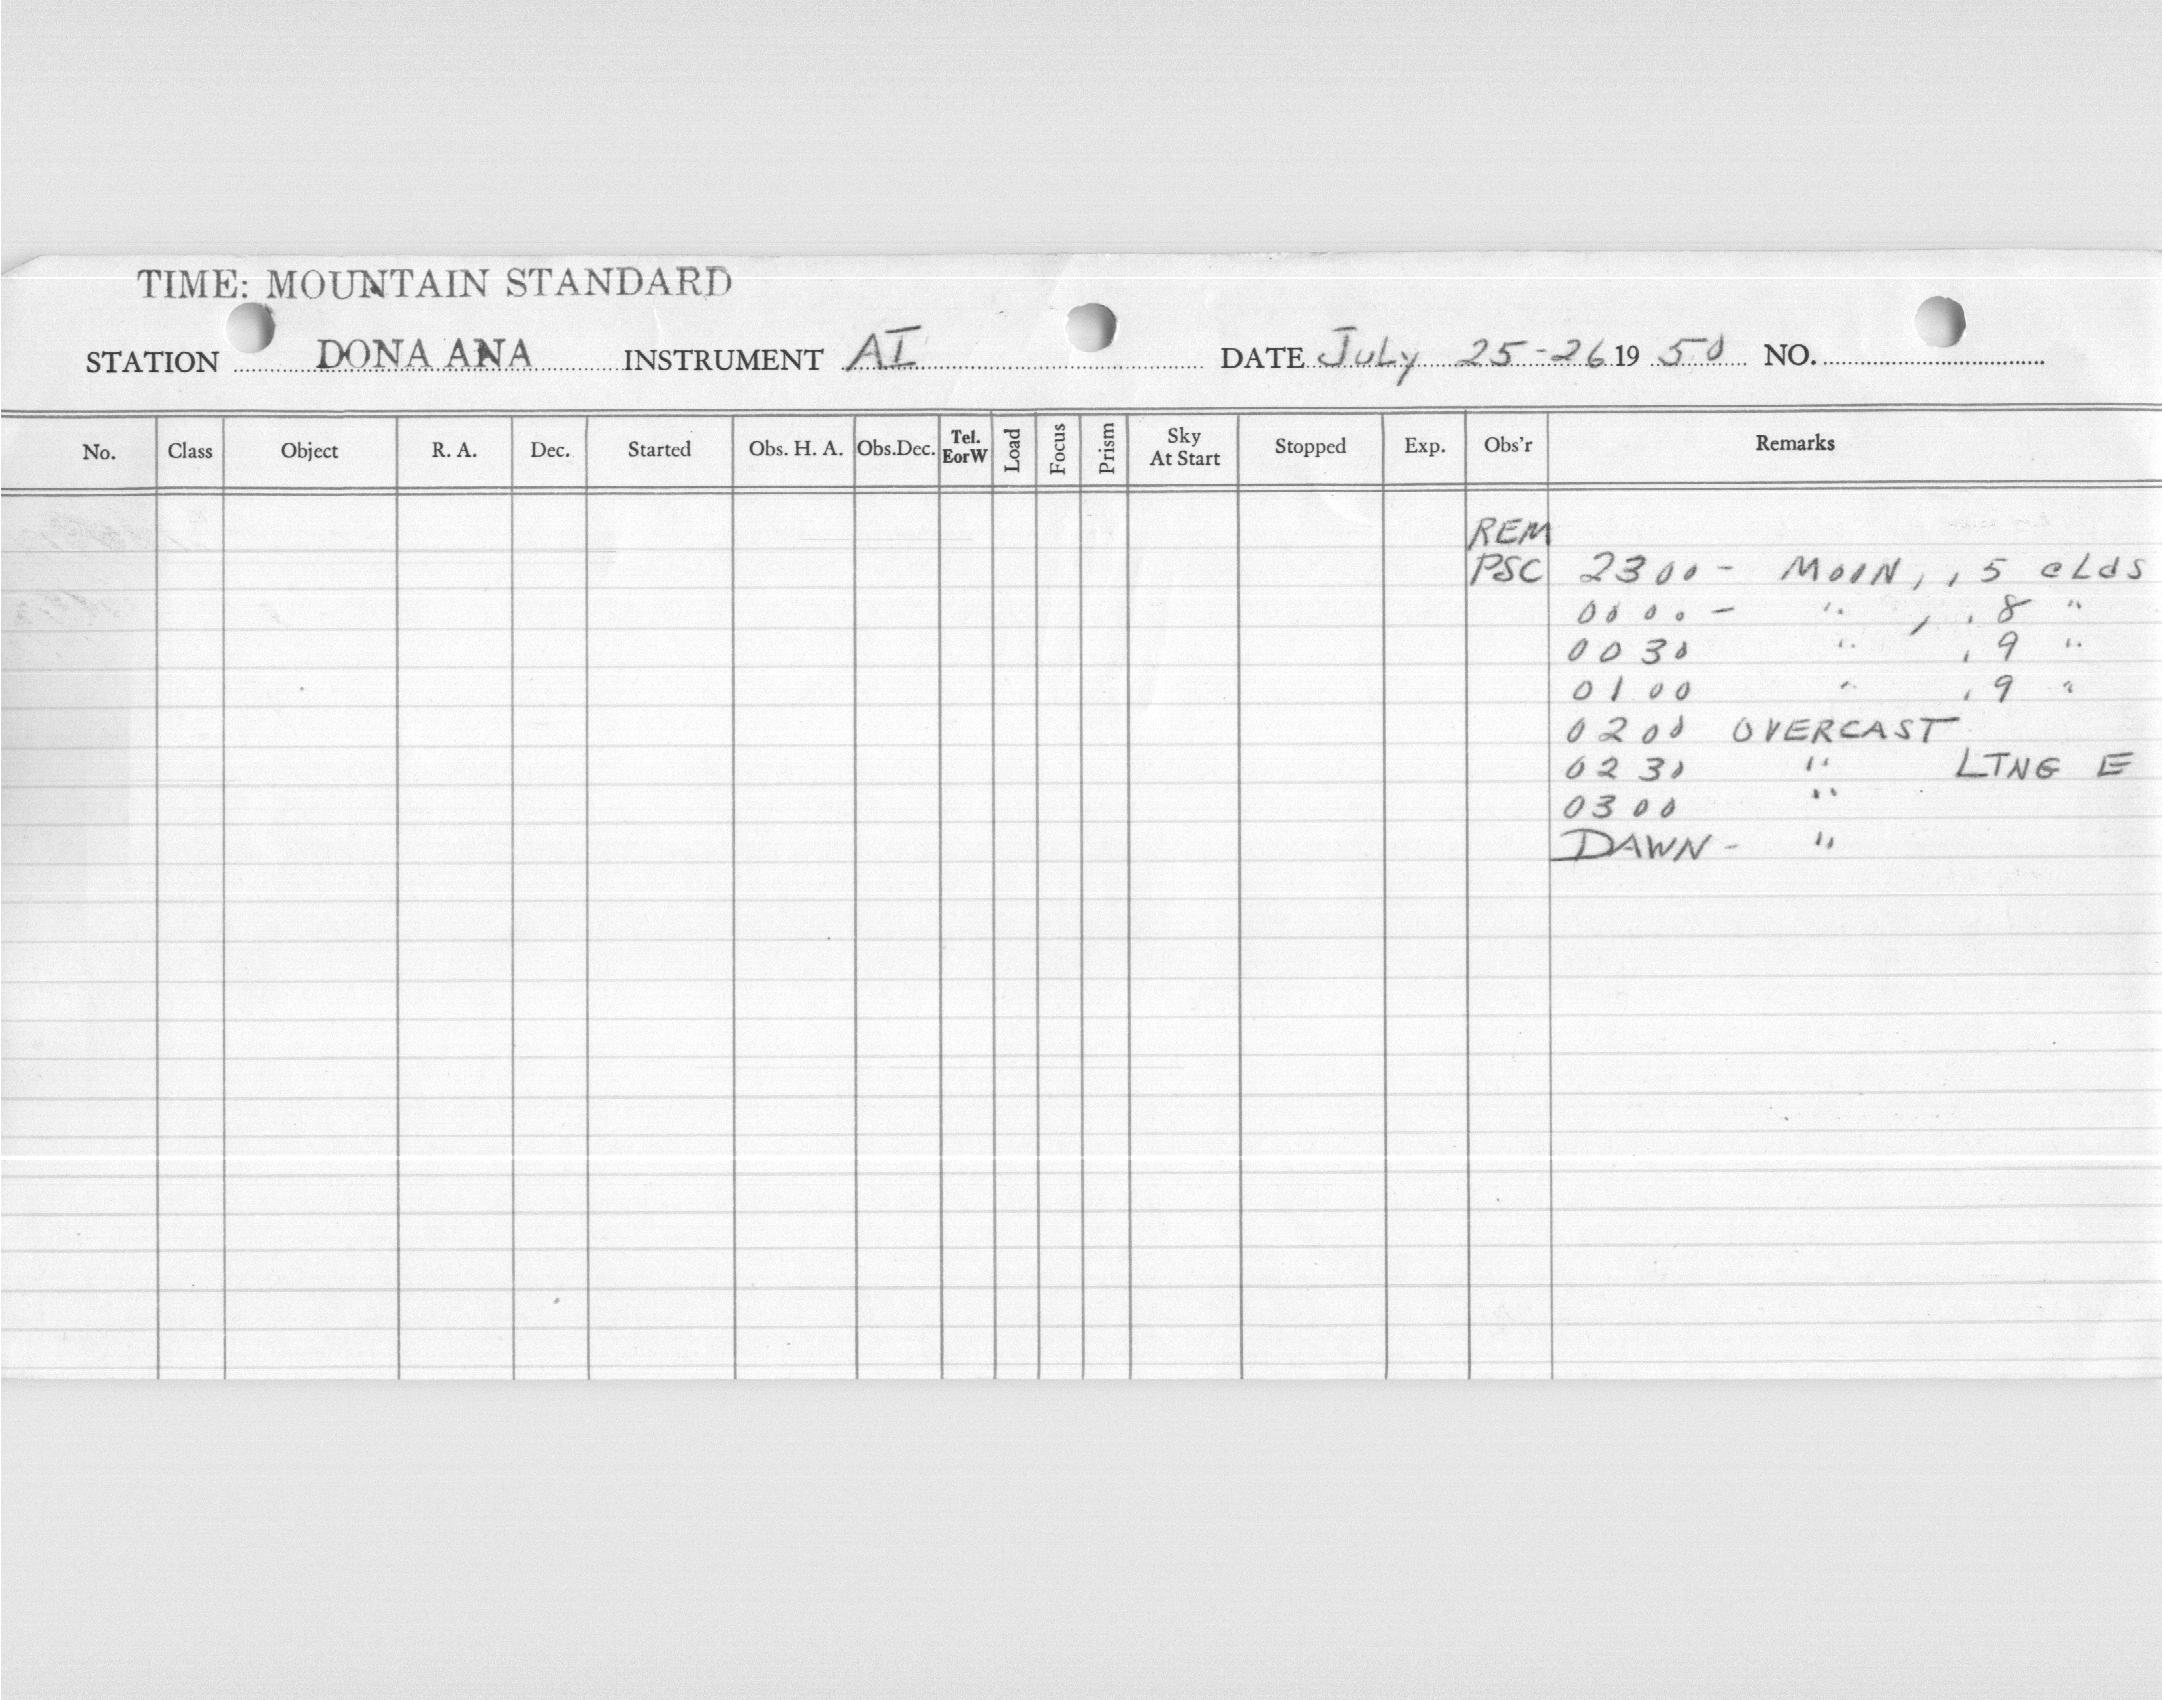 TIME: MOUNTAIN STANDARD
STATION DONA ANA INSTRUMENT AI DATE July 25-26 19 50 NO.
No. Class Object R. A. Dec. Started Obs. H. A. Obs.Dec. Tel. EorW Load Focus Prism Sky At Start Stopped Exp. Obs'r Remarks
REM
PSC 2300- MOON, .5 cLds
0000- " , .8 "
0030 " .9 "
0100 " .9 "
0200 OVERCAST
0230 " LTNG E
0300 "
DAWN- "